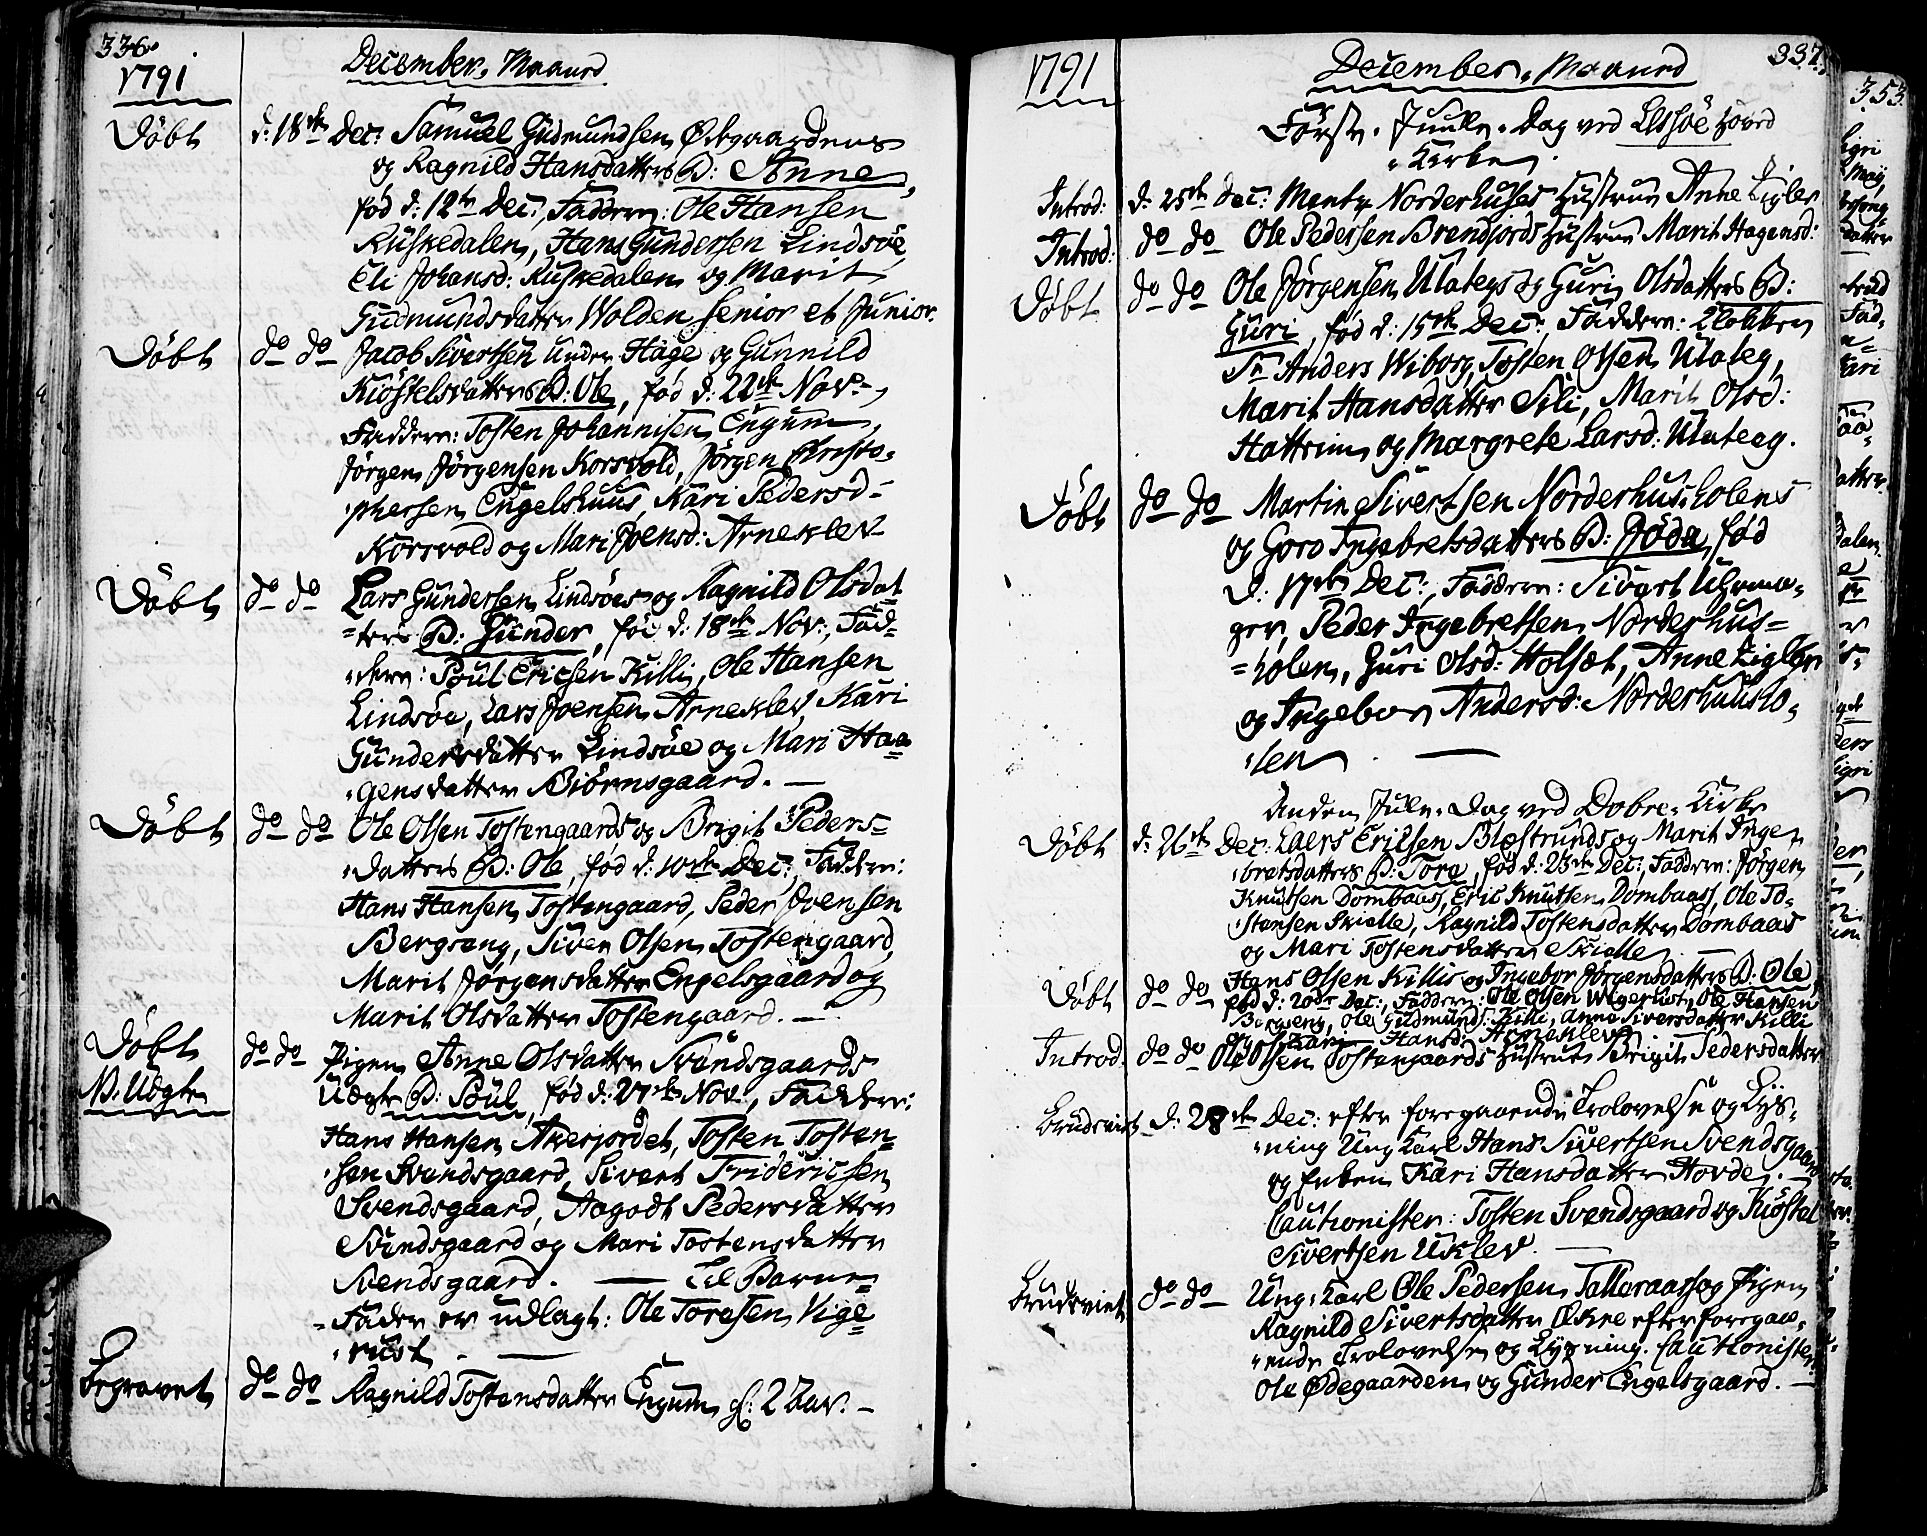 336
1791
December-Maaned
Döbt d: 18de Dec: Samuel Gudmundsen Ödegaardens
og Ragnild Hansdatters B: Anne,
fød d: 12te Dec:, Faddere: Ole Hansen
Kuskedalen, Hans Gundersen Lindsöe
Eli Johansd: Kuskedalen og Marit
Gudmundsdatter Wolden senior et Junior.
Döbt do do Jacob Sivertsen under Hage og Gunnild
Kiöstelsdatters B: Ole, fød d: 22de Nov:
Faddere: Tosten Johannisen Engum,
Jörgen Jörgensen Korsvold, Jörgen Christo-
phersen Engelshuus, Kari Pedersd-
Korsvold og Mari Joensd: Arneklev
Döbt do do Lars Gundersen Lindsöes og Ragnild Olsdat-
ters B: Gunder, fød d: 18de Nov:, Fad-
dere: Poul Ericsen Killi, Ole Hansen
Lindsöe, Lars Joensen Arneklev, Kari
Gundersdatter Lindsöe og Mari Haa-
gensdatter Biörnsgaard. —
Döbt do do Ole Olsen Tostengaards og Brigit Peders-
datters B: Ole, fød d: 10de Dec:, Faddere:
Hans Hansen Tostengaard, Peder Ovensen
Bergseng, Siver Olsen Tostengaard,
Marit Jörgensdatter Engelsgaard og
Marit Olsdatter Tostengaard. —
Döbt do do Pigen Anne Olsdatter Svendsgaards
N. Uægte Uægte B: Poul, fød d: 27de Nov:, Faddere:
Hans Hansen Akerjordet, Tosten Tosten-
sen Svendsgaard, Sivert Fridericsen
Svendsgaard, Aagodt Pedersdatter
Svendsgaard og Mari Tostensdatter
Svendsgaard. — Til Barne-
Fader er udlagt: Ole Toresen Vige-
rust. —
Begravet do do Ragnild Tostensdatter Engum gl: 2 Aar. —
337.
1791
December-Maaned
Förste Juule-Dag ved Lessöe Hoved
Kirke.
Introd: d: 25de Dec: Norderhuses Hustrue Anne
Introd: do do Ole Pedersen Brendjords Hustrue Marit Hagensd:
Döbt do do Ole Jörgensen Ulateys og Guri Olsdatters B:
Guri, fød d: 15de Dec:, Faddere: Klokken
Sr Anders Wiborg, Tosten Olsen Ulateg,
Marit Hansdatter Sili, Marit Olsd:
Hattrim og Margrete Larsd: Ulateeg.
Döbt do do Martin Sivertsen Norderhus:holens
og Goro Ingebretsdatters B: Jöda, fød
d: 17de Dec:, Faddere: Sivert Uhrma-
ger, Peder Ingebretsen Norderhus-
holen, Guri Olsd: Holsæt, Anne
og Ingebor Andersd: Norderhuusho-
len —
Anden Jule-Dag ved Dobre-Kirke
Döbt d: 26de Dec: Laers Ericsen Blæstrunds og Marit Inge-
bretsdatters B: Tore, fød d: 23de Dec:, Faddere: Jörgen
Knutsen Dombaas, Eric Knutsen Dombaas, Ole To-
stensen Skielle, Ragnild Tostensdatter Dombaas
og Mari Tostensdatter Skielle —
Döbt do do Hans Olsen Killis og Ingebor Jörgensdatters B: Ole,
fød d: 20de Dec:, Faddere: Ole Olsen Wigerust, Ole Hansen
Bergseng, Ole Gudmunds: Killi, Anne Siversdatter Killi
og Kari Hansd: Arneklev
Introd. do do Ole Olsen Tostengaards Hustrue Brigit Pedersdatter
Brudeviet d: 28de Dec: efter foregaaende Trolovelse og Lys-
ning Ung Karl Hans Sivertsen Svendsgaard
og Enken Kari Hansdatter Hovde. —
Cautionister: Tosten Svendsgaard og Kiöstel
Sivertsen Uklev. —
Brudeviet do do Ung-Karl Ole Pedersen Talleraas og Pigen
Ragnild Sivertsdatter Økne efter foregaa-
ende Trolovelse og Lysning. Cautionister:
Ole Ødegaarden og Gunder Engelsgaard. —
353